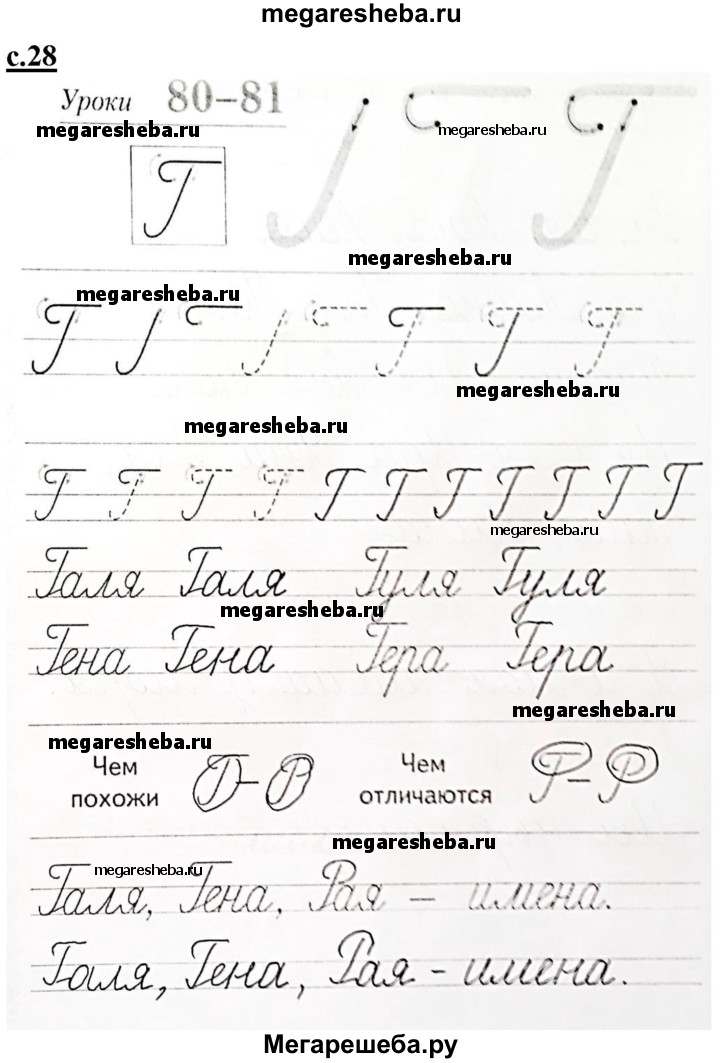 megaresheba.ru
с.28
Уроки 80–81
megaresheba.ru megaresheba.ru
Г
megaresheba.ru
megaresheba.ru
Г Г Г Г
megaresheba.ru
megaresheba.ru
Г Г Г Г Г Г Г Г Г Г Г
megaresheba.ru
Галя Галя Гуля Гуля
megaresheba.ru
Гена Гена Гера Гера
megaresheba.ru
megaresheba.ru
Чем похожи Г – В Чем отличаются Г – Р
megaresheba.ru
megaresheba.ru
Галя, Гена, Рая – имена.
Галя, Гена, Рая – имена.
Мегарешеба.ру